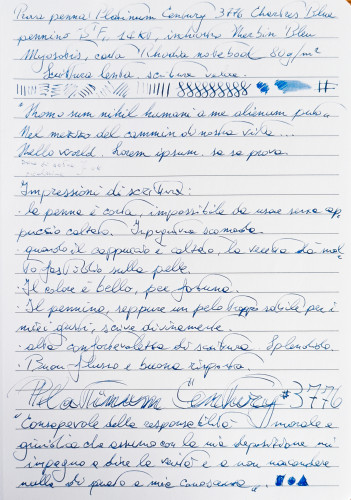 Prova penna Platinum Century 3776 Chartres Blue
pennino F, 14k, inchiostro Herbin Bleu
Myosotis, carta Rhodia notebook 80 g/m²
Scrittura lenta, scrittura veloce.
"Homo sum nihil humani a me alienum puto"
Nel mezzo del cammin di nostra vita...
Hello world. Lorem ipsum. sa sa prova
Impressioni di scrittura:
· la penna è corta, impossibile da usare senza cap
puccio calzato. Impugnatura scomoda.
· quando il cappuccio è calzato, la vedo da mol
to fastidio sulla pelle.
· Il colore è bello, per fortuna.
· Il pennino, seppure un pelo troppo sottile per i
miei gusti, scrive divinamente.
· alta confortevolezza di scrittura Splendido.
· Buon flusso e buona risposta.
Platinum Century #3776
"Consapevole della responsabilità morale e
giuridica che assumo con la mia deposizione mi
impegno a dire la verità e a non nascondere
nulla di quanto a mia conoscenza".